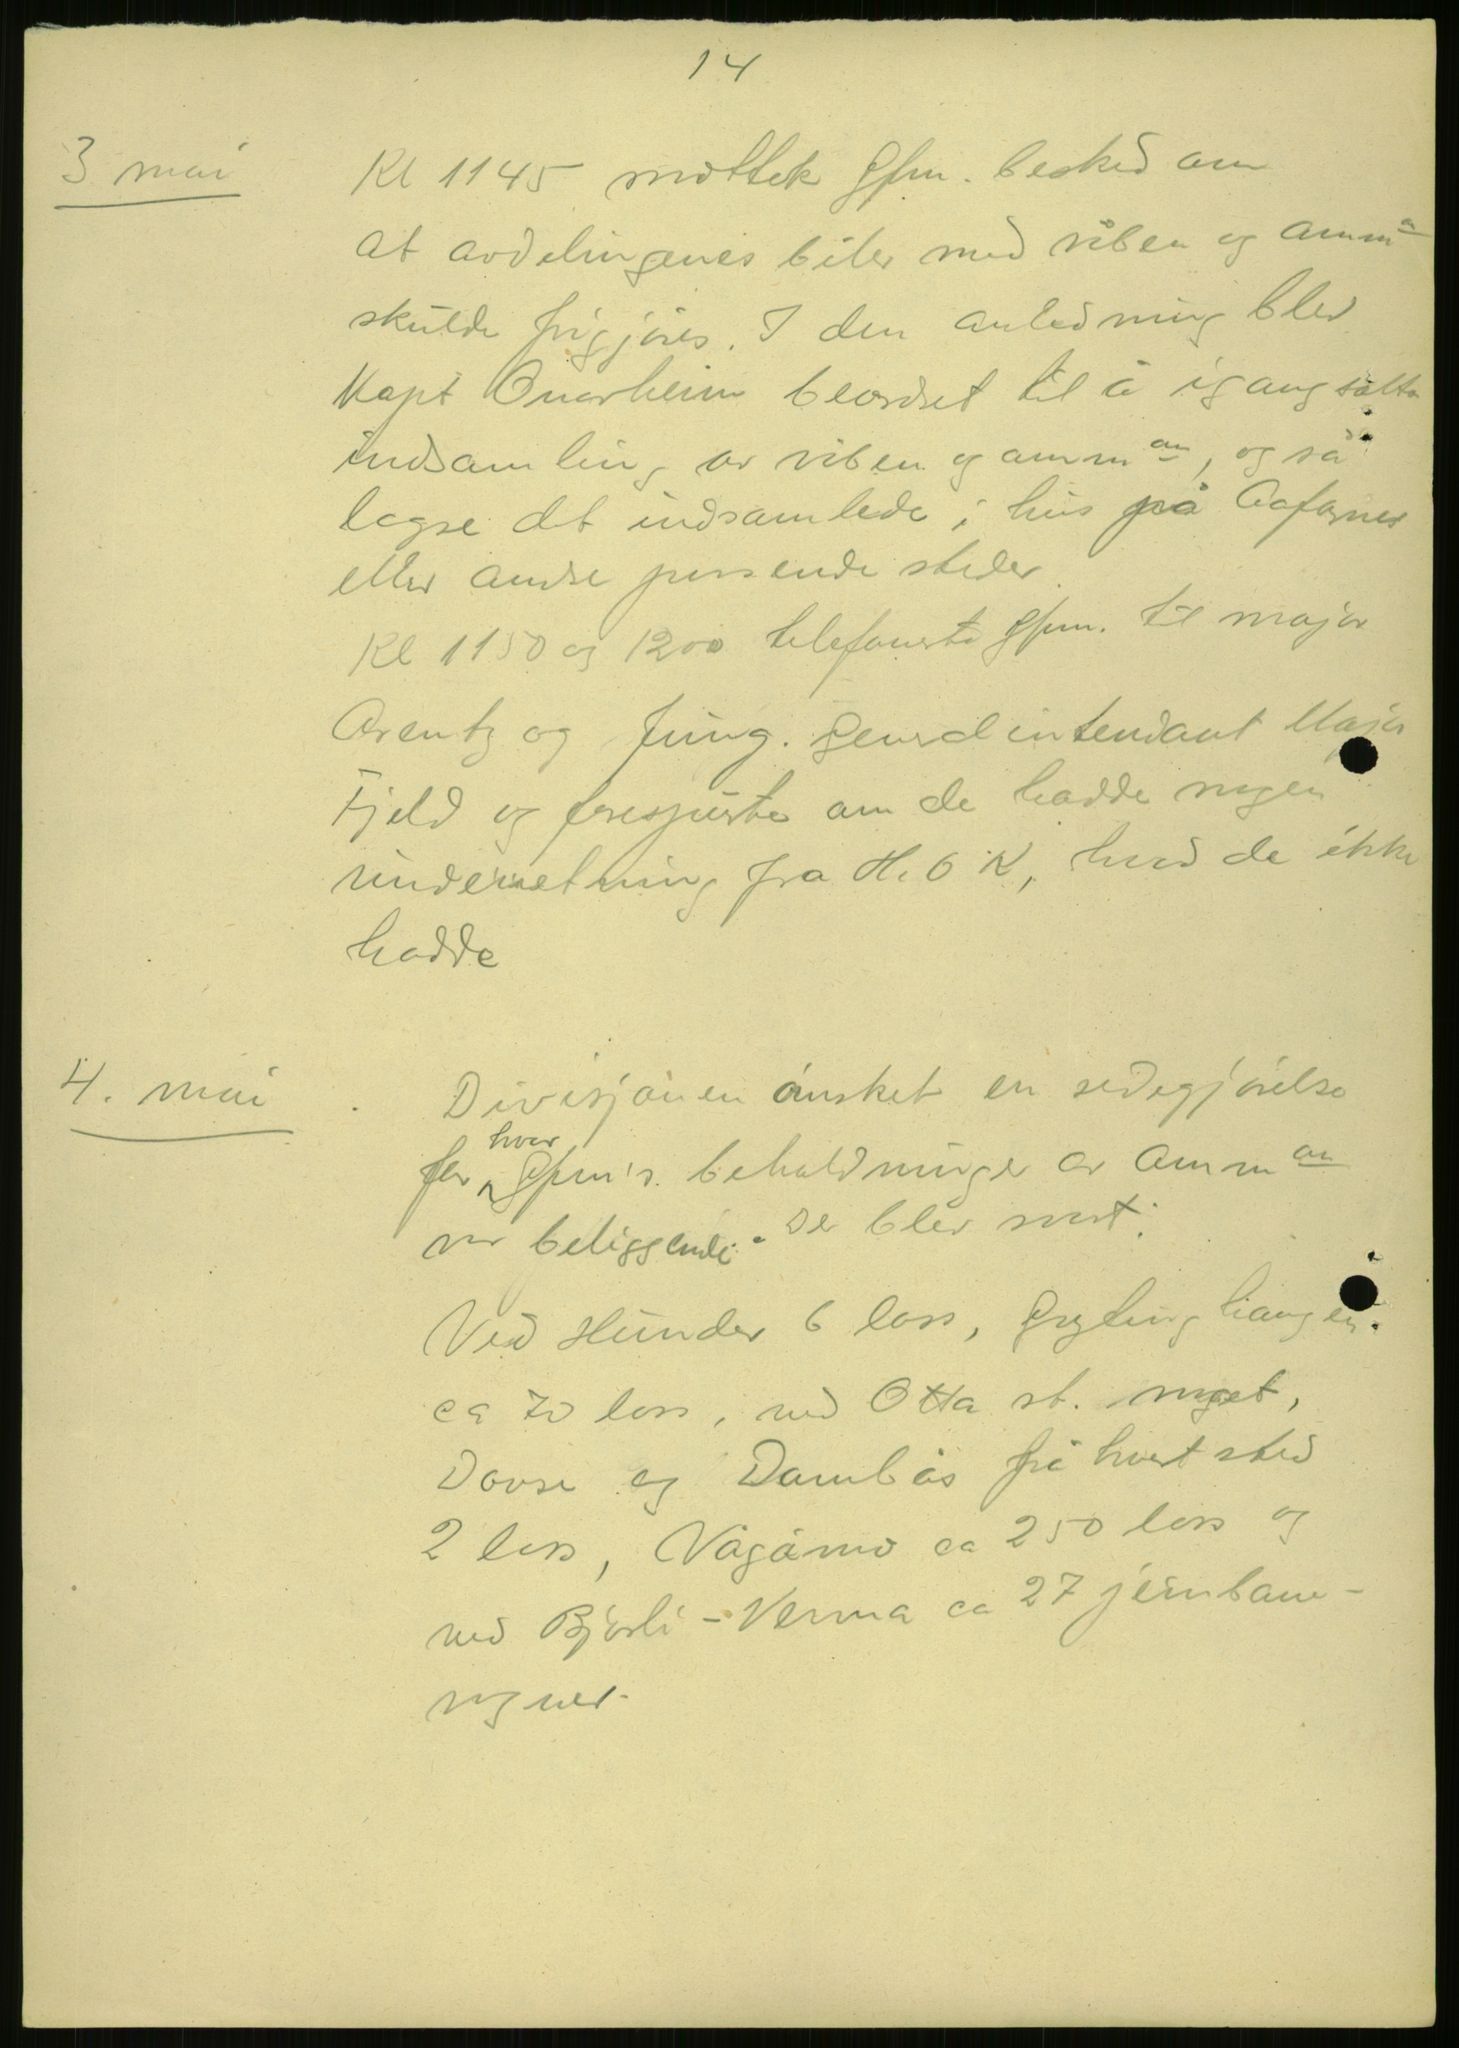 14
3 mai
Kl 1145 mottok Gfm. besked om
at avdelingenes biler med våben og amm<sup>n</sup>
skulde frigjøres. I den anledning blev
Kapt Onarheim beordret til å igangsætte
indsamling av våben og amm<sup>on</sup>, og så
lagre det indsamlede i hus på Aafarnes
eller andre passende steder.
Kl 1150 og 1200 telefonerte Gfm. til major
Arentz og fung. generalintendant Major
Fjeld og forespurte om de hadde nogen
underretning fra H.O.K, hvad de ikke
hadde
4. mai
Divisjonen ønsket en redegjørelse
for hvor Gfm's. beholdninger av amm<sup>on</sup>
var beliggende. Der blev svart:
Ved Hunder 6 lass, Gryting haugen
ca 70 lass, ved Otta st. noget,
Dovre og Dombås på hvert sted
2 lass, Vågåmo ca 250 lass og
ved Bjorli - Verma ca 27 jernbane-
vogner.